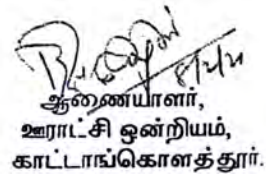 ஆணையாளர்,
ஊராட்சி ஒன்றியம்,
காட்டாங்கொளத்தூர்.